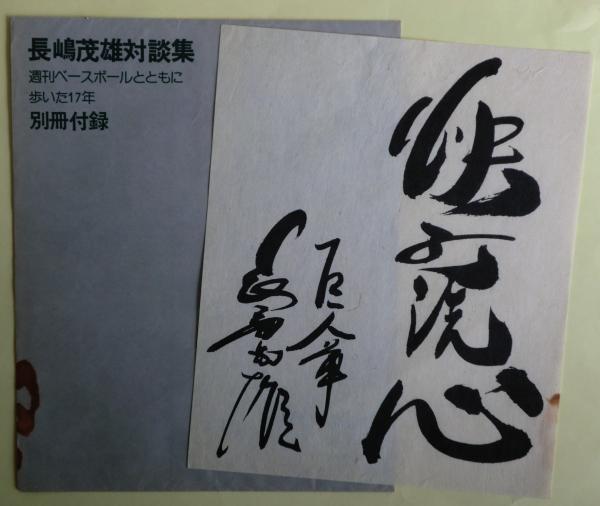 長嶋茂雄対談集
週刊ベースボールとともに
歩いた17年
別冊付録
快打洗心
巨人軍
長島茂雄